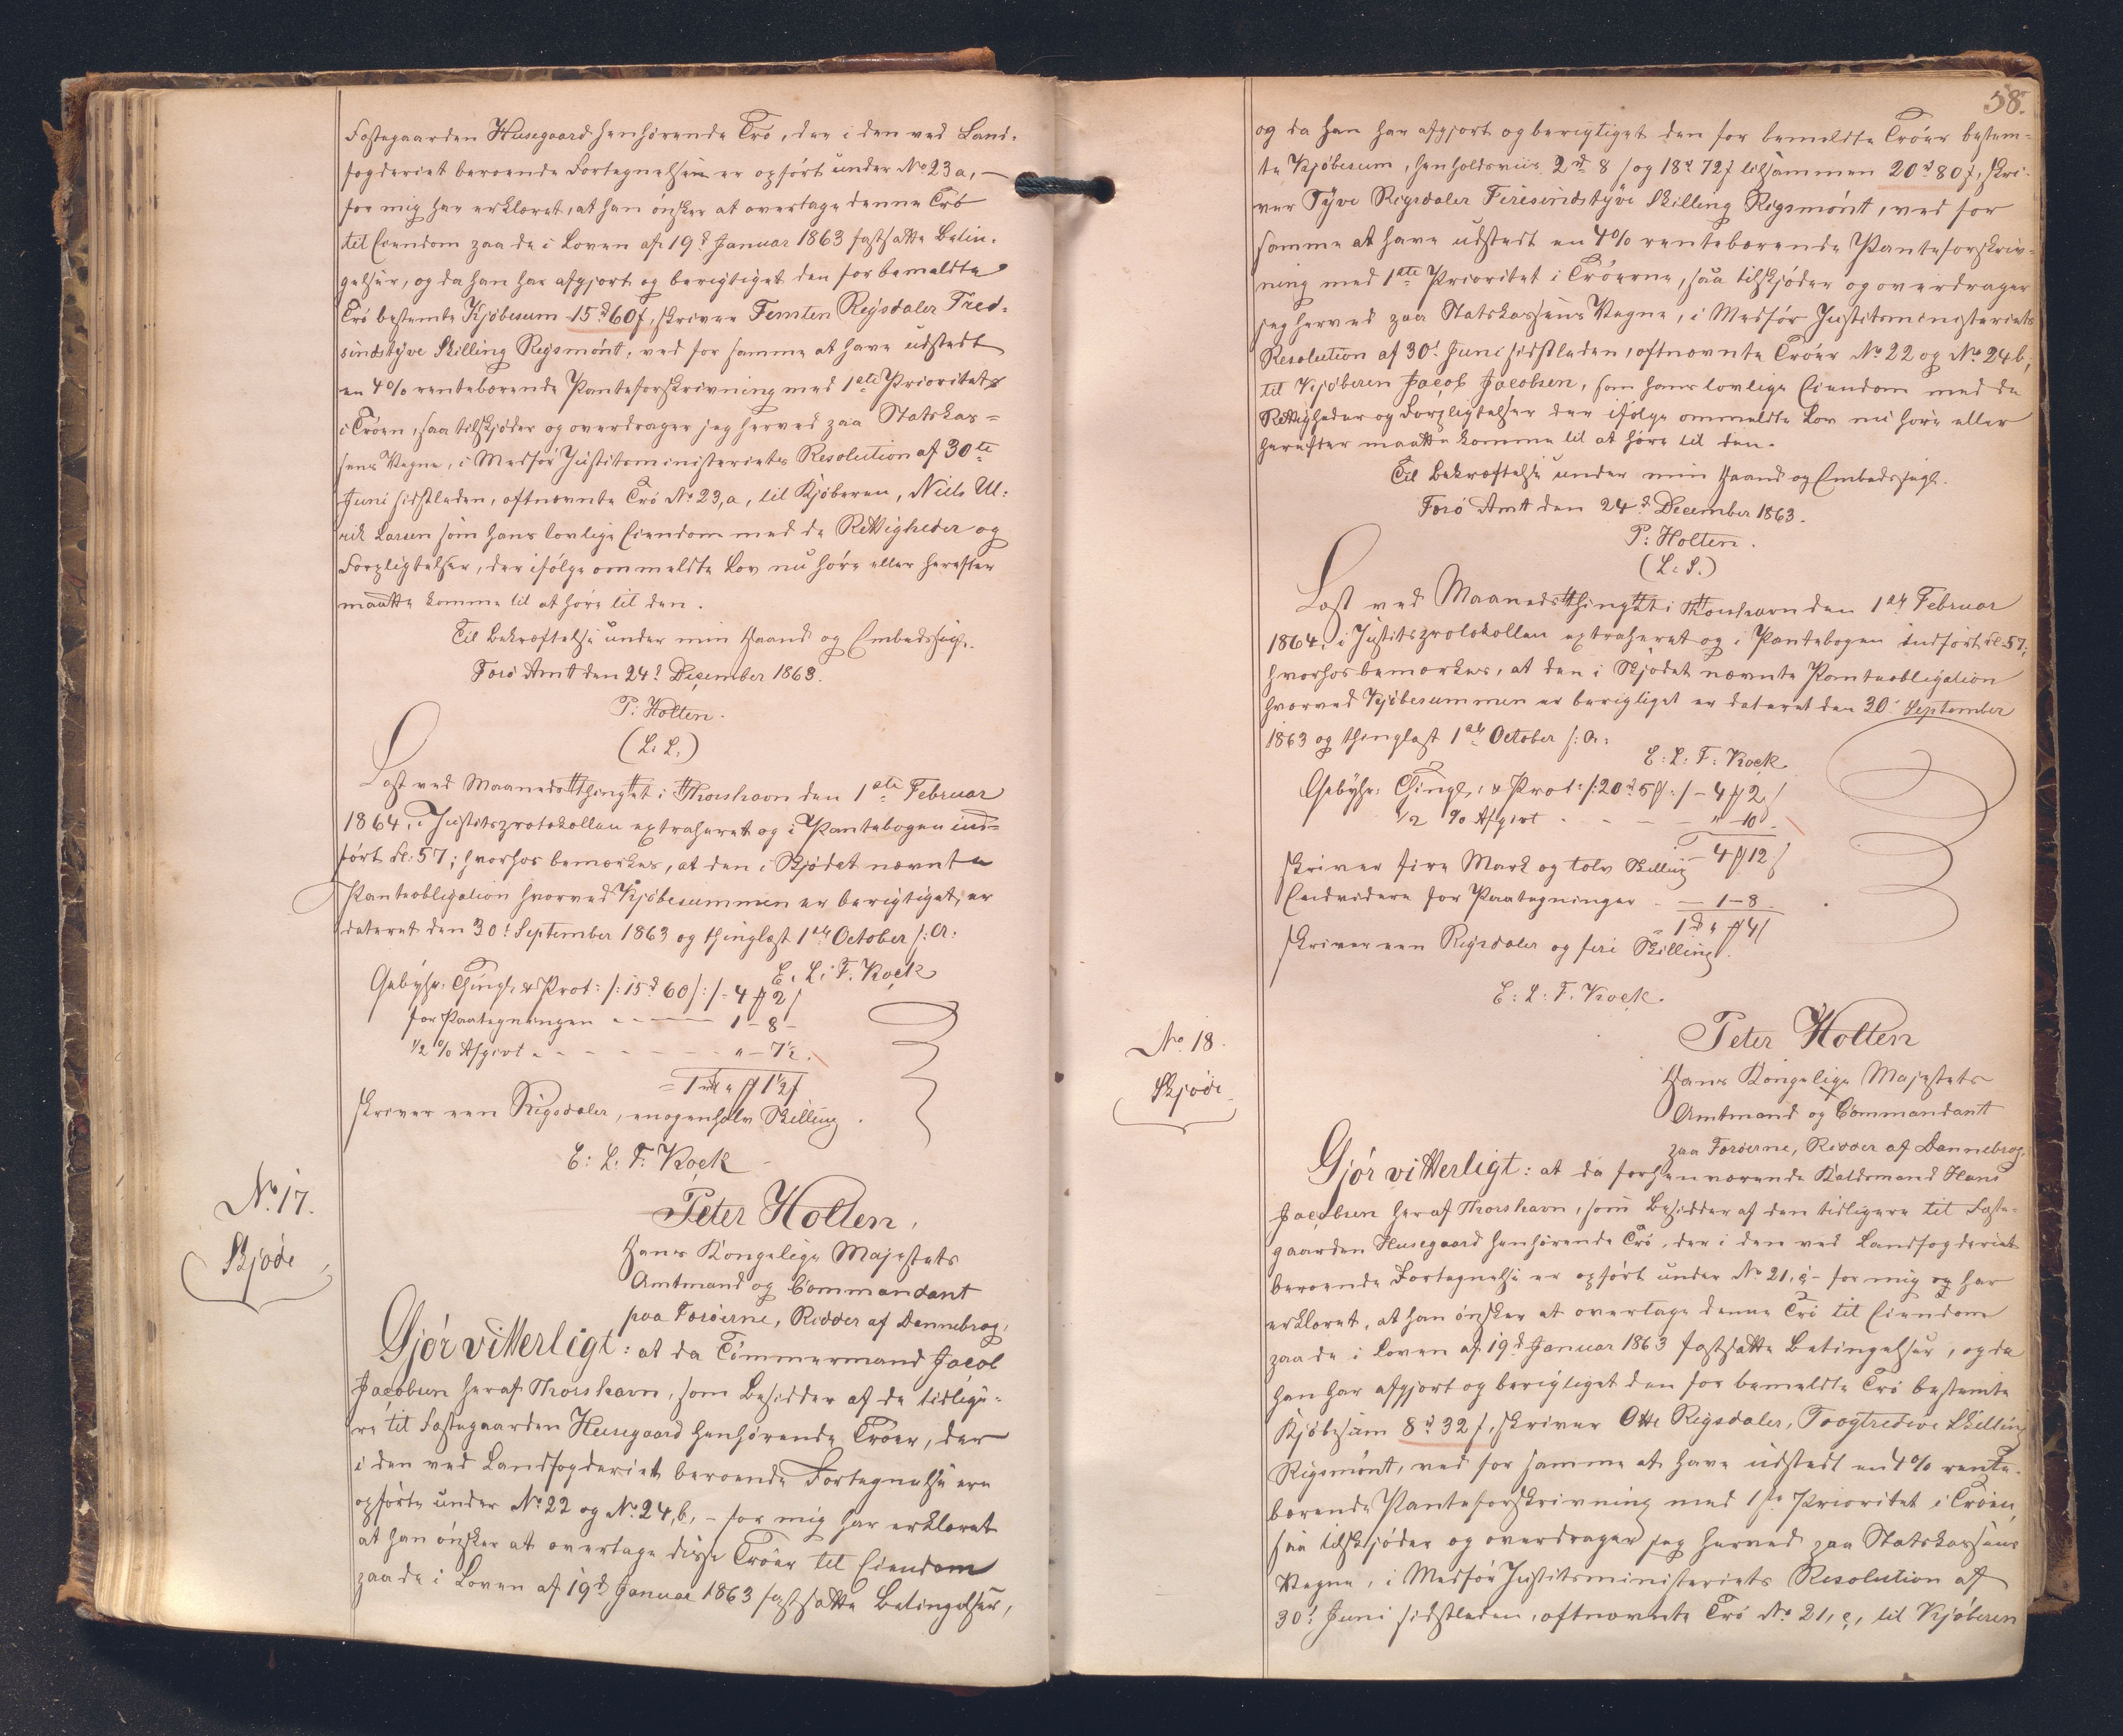 Fæstegaarden Husegaard henhørende Trø, der i den ved Land-
fogderiet beroende Fortegnelse er opført under No 23a, –
for mig har erklæret, at han ønsker at overtage denne Trø
til Eiendom paa de i Loven af 19d Januar 1863 fastsatte Betin-
gelser, og da han har afgjort og berigtiget den for bemeldte
Trø bestemte Kjøbesum 15rd 60s, skriver Femten Rigsdaler Tred-
sindstyve Skilling Rigsmønt, ved for samme at have udstedt
en 4% rentebærende Panteforskrivning med 1ste Prioritet
i Trøen, saa tilskjøder og overdrager jeg herved paa Statskas-
sens Vegne, i Medfør Justitsministeriets Resolution af 30te
Juni sidstleden, oftnævnte Trø No 23,a, til Kjøberen, Niels Ul-
rik Larsen som hans lovlige Eiendom med de Rettigheder og
Forpligtelser, der ifølge ommeldte Lov nu høre eller herefter
maatte komme til at høre til den.
Til Bekræftelse under min Haand og Embedssegl.
Færø Amt den 24d December 1863.
P: Holten.
(L. S.)
Læst ved Maanedstthingtet i Thorshavn den 1ste Februar
1864, i Justitsprotokollen extraheret og i Pantebogen ind-
ført fol: 57; hvorhos bemærkes, at den i Skjødet nævnte
Panteobligation hvorved Kjøbesummen er berigtiget, er
dateret den 30t September 1863 og thinglæst 1ste October s: A:
E. L: F. Kock
Gebyhr: Thingl: & Prot: /:15d 60s:/ - 4 # 2s
for Paategningen - - - - 1 - 8 -
½ % Afgivt - - - - - - " - 7½.
= 1rd " # 1½s
skriver een Rigsdaler, enogenhalv Skilling.
E: L: F: Kock
No. 17.
Skjøde
Peter Holten,
Hans Kongelige Majestets
Amtmand og Commandant
paa Færøerne, Ridder af Dannebrog,
Gjør vitterligt: at da Tømmermand Jacob
Jacobsen heraf Thorshavn, som Besidder af de tidlige-
re til Fæstegaarden Husegaard henhørende Trøer, der
i den ved Landfogderiet beroende Fortegnelse ere
opførte under No 22 og No 24,b, - for mig har erklæret
at han ønsker at overtage disse Trøer til Eiendom
paa de i Loven af 19d Januar 1863 fastsatte Betingelser,
58.
og da han har afgjort og berigtiget den for bemeldte Trøer bestem-
te Kjøbesum, henholdsviis 2rd 8s og 18d 72s tilsammen 20d 80s, skri-
ver Tyve Rigsdaler Firesindstyve Skilling Rigsmønt, ved for
samme at have udstedt en 4% rentebærende Panteforskriv-
ning med 1ste Prioritet i Trøerne, saa tilskjøder og overdrager
jeg herved paa Statskassens Vegne, i Medfør Justitsministeriets
Resolution af 30t Juni sidstleden, oftnævnte Trøer No 22 og No 24b,
til Kjøberen Jacob Jacobsen, som hans lovlige Eiendom med de
Rettigheder og Forpligtelser der ifølge ommeldte Lov nu høre eller
herefter maatte komme til at høre til den.
Til Bekræftelse under min Haand og Embedssegl.
Færø Amt den 24d December 1863.
P: Holten.
(L. S.)
Læst ved Maanedstthingtet i Thorshavn den 1ste Februar
1864, i Justitsprotokollen extraheret og i Pantebogen indført fol: 57,
hvorhos bemærkes, at den i Skjødet nævnte Panteobligation
hvorved Kjøbesummen er berigtiget er dateret den 30t September
1863 og thinglæst 1ste October s: A:
E: L: F: Kock
Gebyhr: Thingl: & Prot: /:20d 5s:/ - 4 # 2s
½ % Afgivt - - - - " 10.
4 # 12s
skriver fire Mark og tolv Skilling
Endvidere for Paategninger - - 1 - 8.
1rd " # 4s
skriver een Rigsdaler og fire Skilling.
E: L: F. Kock.
No. 18.
Skjøde
Peter Holten
Hans Kongelige Majestets
Amtmand og Commandant
paa Færøerne, Ridder af Dannebrog.
Gjør vitterligt: at da forhenværende Kaldsmand Hans
Jacobsen heraf Thorshavn, som Besidder af den tidligere til Fæste-
gaarden Husegaard henhørende Trø, der i den ved Landfogderiet
beroende Fortegnelse er opført under No 21,c, - for mig og har
erklæret, at han ønsker at overtage denne Trø til Eiendom
paa de i Loven af 19d Januar 1863 fastsatte Betingelser, og da
han har afgjort og berigtiget den for bemeldte Trø bestemte
Kjøbesum 8d 32s, skriver Otte Rigsdaler, Toogtredive Skilling
Rigsmønt, ved for samme at have udstedt en 4% rente-
bærende Panteforskrivning med 1ste Prioritet i Trøen,
saa tilskjøder og overdrager jeg herved paa Statskassens
Vegne, i Medfør Justitsministeriets Resolution af
30t Juni sidstleden, oftnævnte Trø No 21,c, til Kjøberen